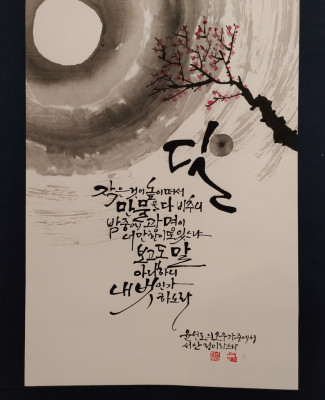 달
작은 것이 높이 떠서
만물을 다 비추니
밤중에 광명이
너만한 이 또 있느냐
보고도 말
아니하니
내 벗인가
하노라
윤선도의 오우가 중에서
서안